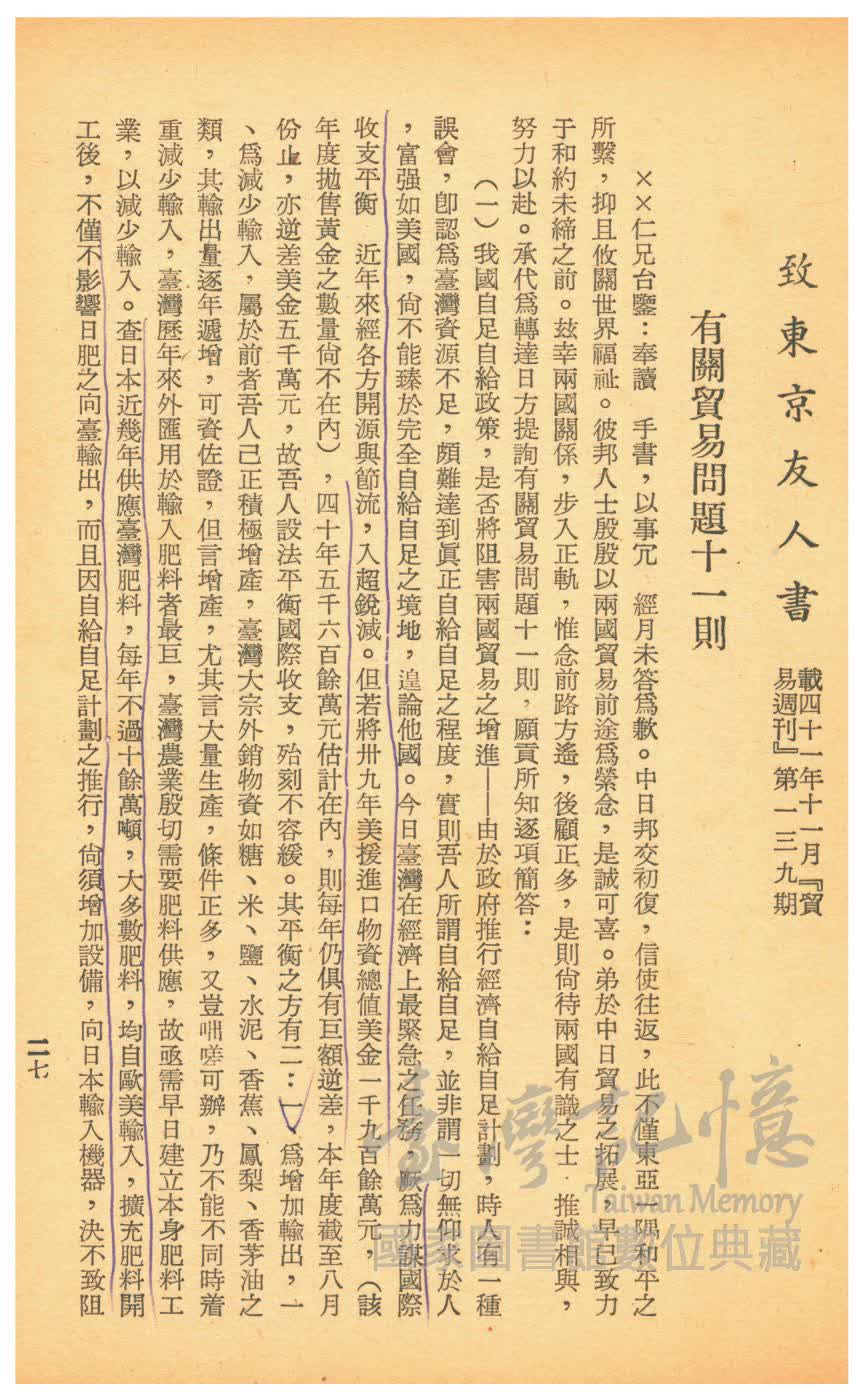 致東京友人書
載四十一年十一月『貿
易週刊』第一三九期
有關貿易問題十一則
××仁兄台鑒：奉讀　手書，以事冗　經月未答爲歉。中日邦交初復，信使往返，此不僅東亞一隅和平之
所繫，抑且攸關世界福祉。彼邦人士殷殷以兩國貿易前途爲縈念，是誠可喜。弟於中日貿易之拓展，早已致力
于和約未締之前。玆幸兩國關係，步入正軌，惟念前路方遙，後顧正多，是則尙待兩國有識之士．推誠相與，
努力以赴。承代爲轉達日方提詢有關貿易問題十一則，願貢所知逐項簡答：
（一）我國自足自給政策，是否將阻害兩國貿易之增進——由於政府推行經濟自給自足計劃，時人有一種
誤會，卽認爲臺灣資源不足，頗難達到眞正自給自足之程度，實則吾人所謂自給自足，並非謂一切無仰求於人
，富强如美國，尙不能臻於完全自給自足之境地，遑論他國。今日臺灣在經濟上最緊急之任務，厥爲力謀國際
收支平衡　近年來經各方開源與節流，入超銳減。但若將卅九年美援進口物資總值美金一千九百餘萬元，（該
年度拋售黃金之數量尙不在內），四十年五千六百餘萬元估計在內，則每年仍俱有巨額逆差，本年度截至八月
份止，亦逆差美金五千萬元，故吾人設法平衡國際收支，殆刻不容緩。其平衡之方有二：一、爲增加輸出，一
、爲減少輸入，屬於前者吾人已正積極增產，臺灣大宗外銷物資如糖、米、鹽、水泥、香蕉、鳳梨、香茅油之
類，其輸出量逐年遞增，可資佐證，但言增產，尤其言大量生產，條件正多，又豈咄嗟可辦，乃不能不同時着
重減少輸入，臺灣歷年來外匯用於輸入肥料者最巨，臺灣農業殷切需要肥料供應，故亟需早日建立本身肥料工
業，以減少輸入。查日本近幾年供應臺灣肥料，每年不過十餘萬噸，大多數肥料，均自歐美輸入，擴充肥料開
工後，不僅不影響日肥之向臺輸出，而且因自給自足計劃之推行，尙須增加設備，向日本輸入機器，決不致阻
二七
臺灣記憶
Taiwan Memory
國家圖書館數位典藏